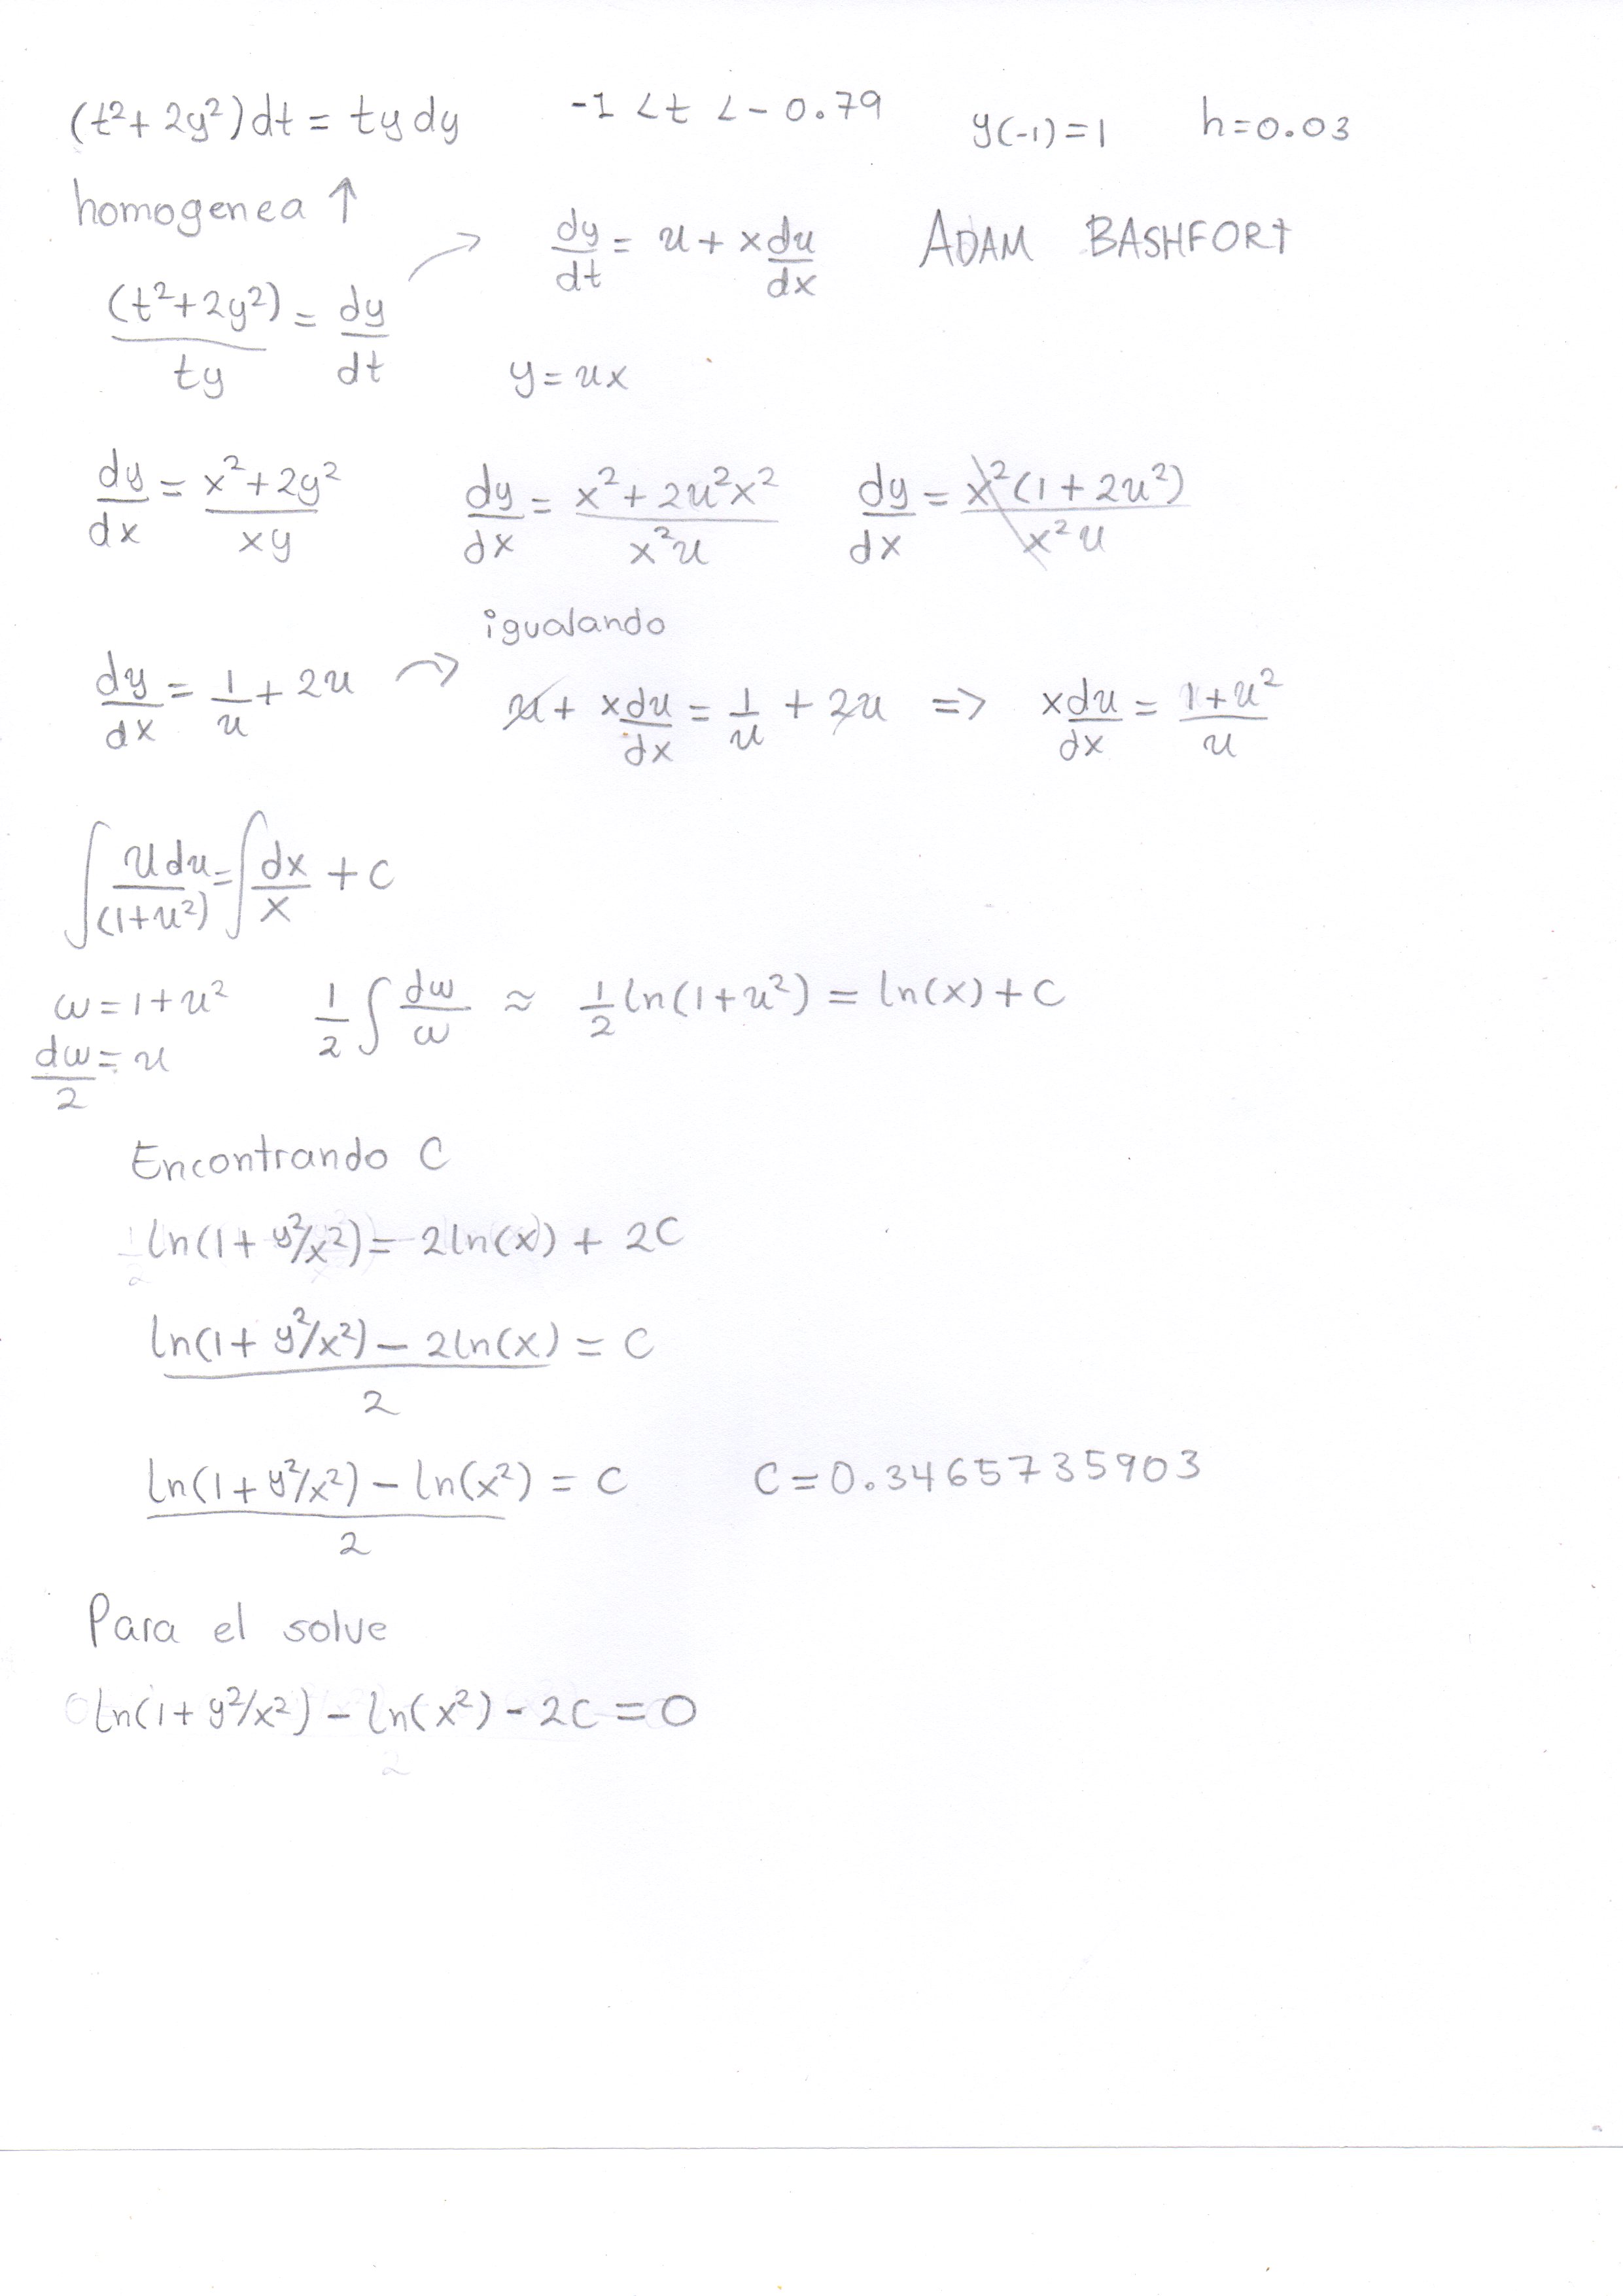 (t²+2y²)dt = ty dy -1 < t < -0.79 y(-1)=1 h=0.03
homogenea ↑
dy/dt = u + x du/dx ADAM BASHFORt
(t²+2y²)/ty = dy/dt
y=ux
dy/dx = x²+2y²/xy dy/dx = x²+2u²x²/x²u dy/dx = x²(1+2u²)/x²u
igualando
dy/dx = 1/u + 2u u + x du/dx = 1/u + 2u => x du/dx = 1+u²/u
∫ u du/(1+u²) = ∫ dx/x + C
ω = 1+u² 1/2 ∫ dω/ω ≈ 1/2 ln(1+u²) = ln(x)+C
dω/2 = u
Encontrando C
ln(1+ y²/x²) = 2ln(x) + 2C
ln(1+ y²/x²) - 2ln(x)/2 = C
ln(1+ y²/x²) - ln(x²)/2 = C C=0.3465735903
Para el solve
ln(1+ y²/x²) - ln(x²) - 2C = 0